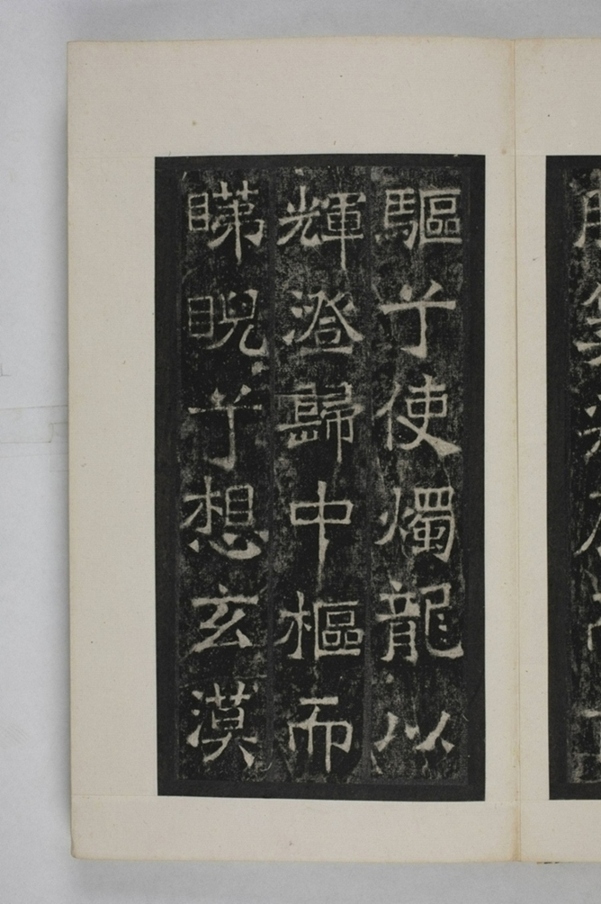 驅兮使燭龍以
輝澄歸中樞而
睇睨兮想玄漠